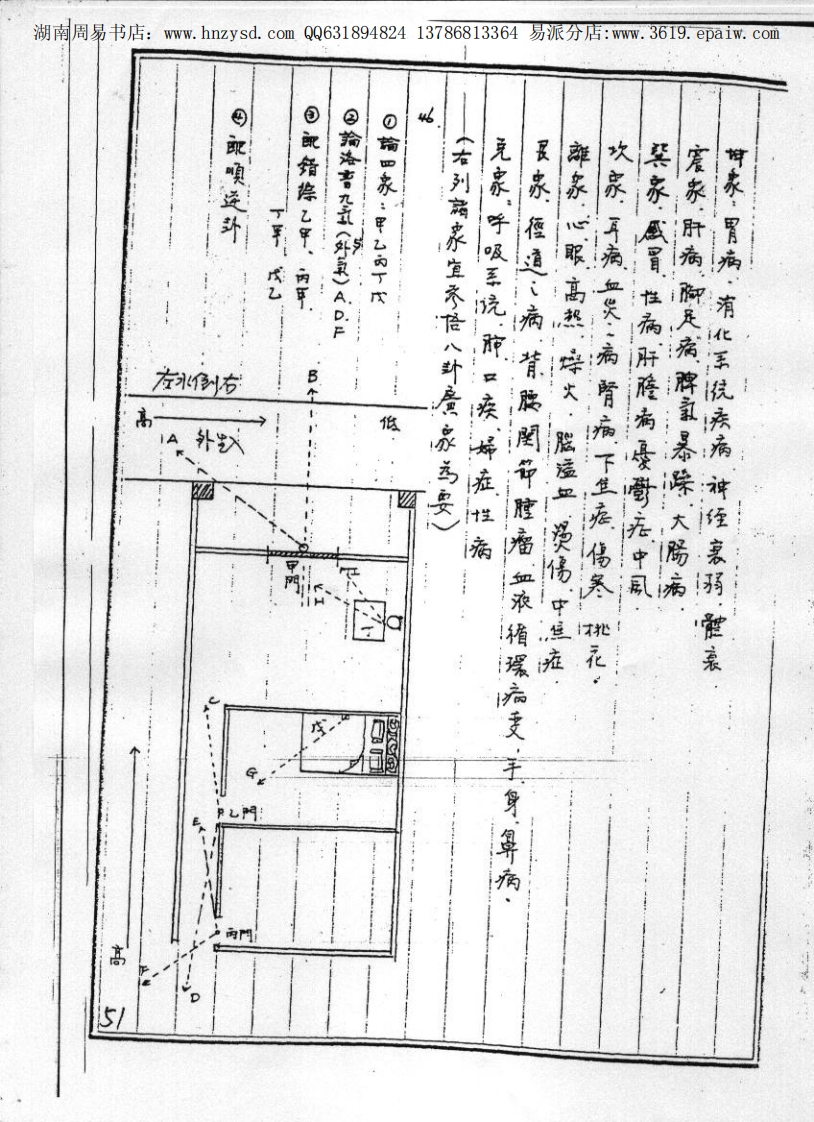 湖南周易书店：www.hnzysd.com QQ631894824 13786813364 易派分店:www.3619.epaiw.com
坤象：胃病．消化系统疾病．神經衰弱．體衰
震象．肝病．脚足病．脾氣暴躁．大腸病．
巽象．感冒．性病．肝膽病．憂鬱症．中風．
坎象．耳病．血災之病．腎病．下焦症．傷寒．桃花。
離象．心．眼．高热．燥火．腦溢血．燙傷．中焦症．
艮象．徑道之病．背．腰．関節．腫瘤．血液循環病变．手．身．鼻病．
兌象：呼吸系统．肺．口疾．婦症．性病
（右列諸象宜参悟八卦廣象為要）
46.
①論四象：甲乙丙丁戊
②論洛書九氣（外氣）A.D.F
③配錯綜乙甲．丙甲．
丁甲．戊乙
④配順逆卦
左水倒右
B
高
外
低
A
甲門
H
I
丁
C
戊
G
乙門
E
丙門
高
F
D
51